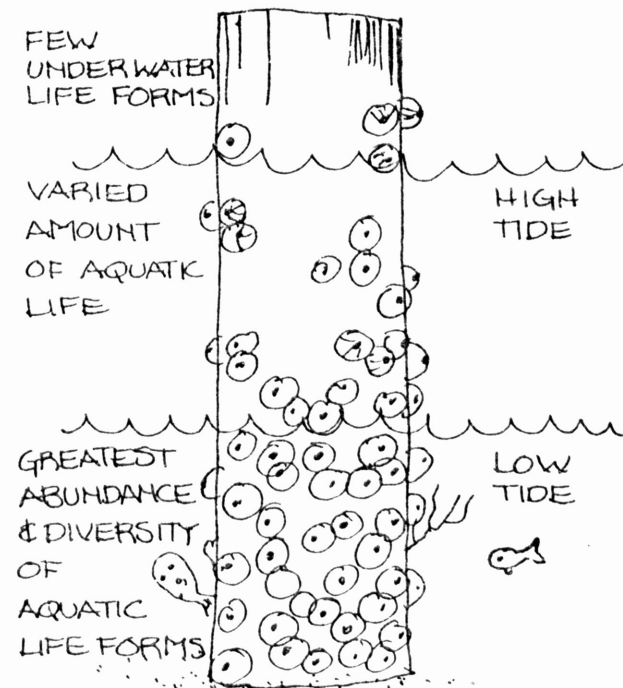 FEW
UNDERWATER
LIFE FORMS
VARIED
AMOUNT
OF AQUATIC
LIFE
HIGH
TIDE
GREATEST
ABUNDANCE
& DIVERSITY
OF
AQUATIC
LIFE FORMS
LOW
TIDE